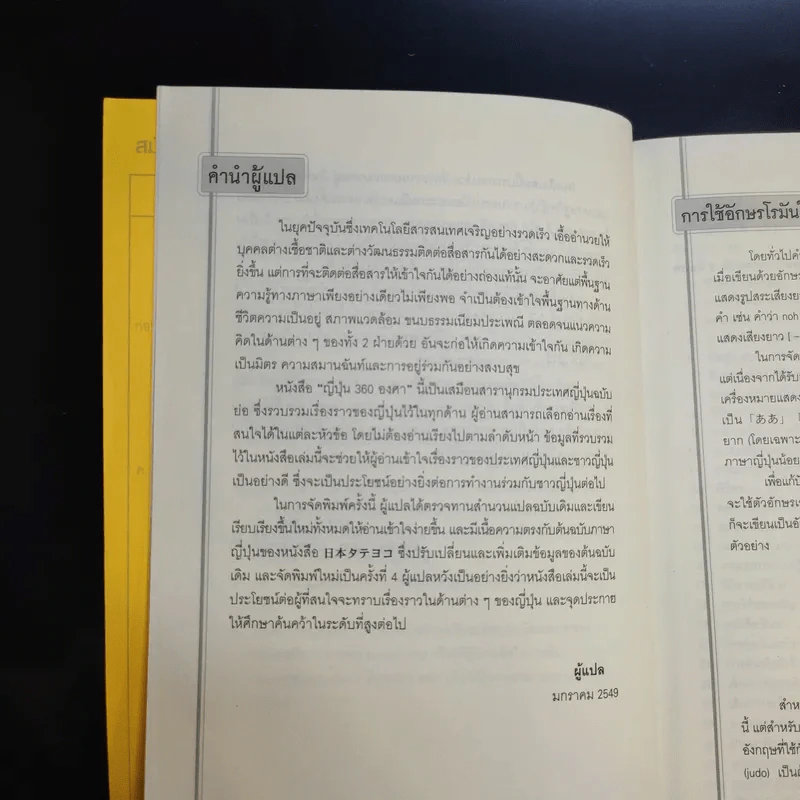 คำนำผู้แปล
ในยุคปัจจุบันซึ่งเทคโนโลยีสารสนเทศเจริญอย่างรวดเร็ว เอื้ออำนวยให้
บุคคลต่างเชื้อชาติและต่างวัฒนธรรมติดต่อสื่อสารกันได้อย่างสะดวกและรวดเร็ว
ยิ่งขึ้น แต่การที่จะติดต่อสื่อสารให้เข้าใจกันได้อย่างถ่องแท้นั้น จะอาศัยแต่พื้นฐาน
ความรู้ทางภาษาเพียงอย่างเดียวไม่เพียงพอ จำเป็นต้องเข้าใจพื้นฐานทางด้าน
ชีวิตความเป็นอยู่ สภาพแวดล้อม ขนบธรรมเนียมประเพณี ตลอดจนแนวความ
คิดในด้านต่าง ๆ ของทั้ง 2 ฝ่ายด้วย อันจะก่อให้เกิดความเข้าใจกัน เกิดความ
เป็นมิตร ความสมานฉันท์และการอยู่ร่วมกันอย่างสงบสุข
หนังสือ "ญี่ปุ่น 360 องศา" นี้เป็นเสมือนสารานุกรมประเทศญี่ปุ่นฉบับ
ย่อ ซึ่งรวบรวมเรื่องราวของญี่ปุ่นไว้ในทุกด้าน ผู้อ่านสามารถเลือกอ่านเรื่องที่
สนใจได้ในแต่ละหัวข้อ โดยไม่ต้องอ่านเรียงไปตามลำดับหน้า ข้อมูลที่รวบรวม
ไว้ในหนังสือเล่มนี้จะช่วยให้ผู้อ่านเข้าใจเรื่องราวของประเทศญี่ปุ่นและชาวญี่ปุ่น
เป็นอย่างดี ซึ่งจะเป็นประโยชน์อย่างยิ่งต่อการทำงานร่วมกับชาวญี่ปุ่นต่อไป
ในการจัดพิมพ์ครั้งนี้ ผู้แปลได้ตรวจทานสำนวนแปลฉบับเดิมและเขียน
เรียบเรียงขึ้นใหม่ทั้งหมดให้อ่านเข้าใจง่ายขึ้น และมีเนื้อความตรงกับต้นฉบับภาษา
ญี่ปุ่นของหนังสือ 日本タテヨコ ซึ่งปรับเปลี่ยนและเพิ่มเติมข้อมูลของต้นฉบับ
เดิม และจัดพิมพ์ใหม่เป็นครั้งที่ 4 ผู้แปลหวังเป็นอย่างยิ่งว่าหนังสือเล่มนี้จะเป็น
ประโยชน์ต่อผู้ที่สนใจจะทราบเรื่องราวในด้านต่าง ๆ ของญี่ปุ่น และจุดประกาย
ให้ศึกษาค้นคว้าในระดับที่สูงต่อไป
ผู้แปล
มกราคม 2549
การใช้อักษรโรมันใ
โดยทั่วไปคำ
เมื่อเขียนด้วยอักษ
แสดงรูปสระเสียงยา
คำ เช่น คำว่า noh
แสดงเสียงยาว [ –
ในการจัด
แต่เนื่องจากได้รับ
เครื่องหมายแสดง
เป็น「ああ」
ยาก (โดยเฉพาะ
ภาษาญี่ปุ่นน้อย
เพื่อแก้ปั
จะใช้ตัวอักษรเ
ก็จะเขียนเป็นอั
ตัวอย่าง
สำห
นี้ แต่สำหรับ
อังกฤษที่ใช้กั
(judo) เป็น